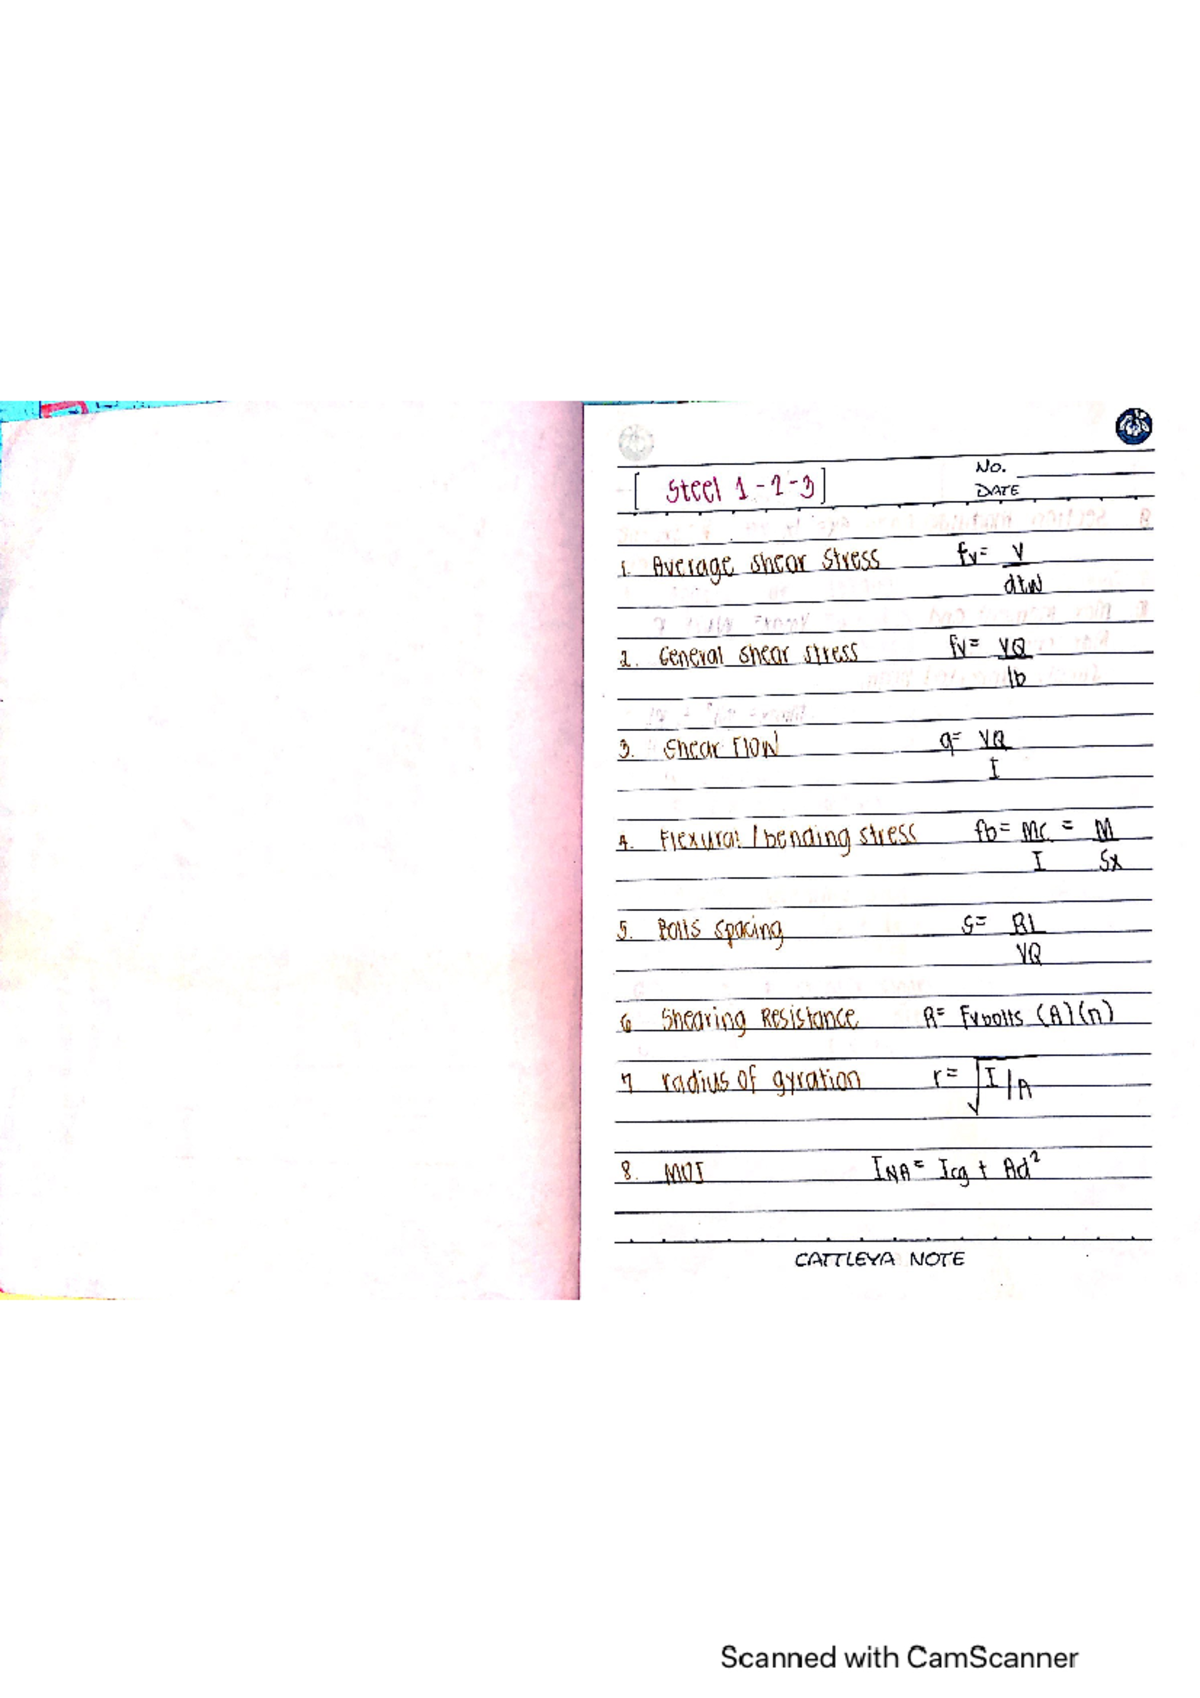 No.
[ Steel 1-2-3 ]
DATE
1. Average shear stress fv = V
dtw
2. General shear stress fv = VQ
Ib
3. Shear Flow q = VQ
I
4. Flexural / bending stress fb = Mc = M
I Sx
5. Bolts spacing s = RI
VQ
6 Shearing Resistance R = Fvbolts (A)(n)
7 radius of gyration r = √I/A
8. MOI INA = Icg + Ad²
CATTLEYA NOTE
Scanned with CamScanner